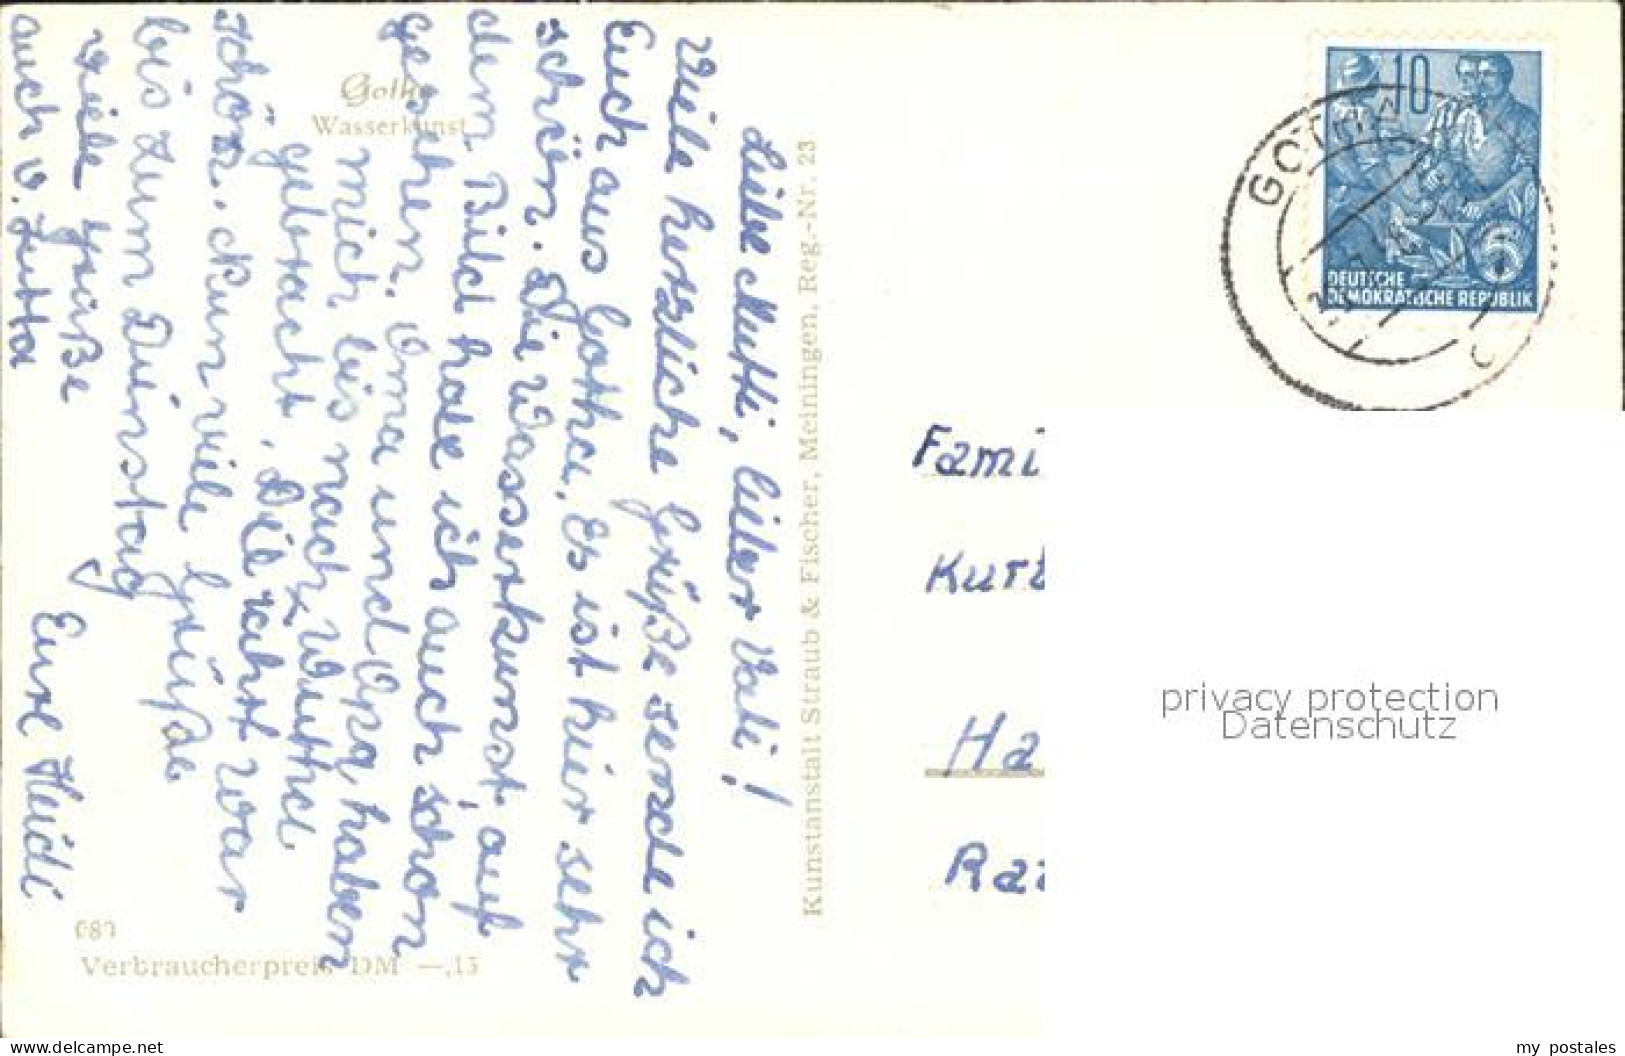 Liebe Mutti, lieber Vati!
Viele herzliche Grüße sende ich
Euch aus Gotha. Es ist hier sehr
schön. Die Wasserkunst auf
dem Bild habe ich auch schon
gesehen. Oma und Opa haben
mich bis nach Wutha
gebracht. Die Fahrt war
schön. Nun viele Grüße
bis zum Dienstag
Eure Heidi
viele Grüße
auch v. Jutta
Gotha
Wasserkunst
Kunstanstalt Straub & Fischer, Meiningen, Reg.-Nr. 23
Verbraucherpreis DM —,15
10
DEUTSCHE
DEMOKRATISCHE REPUBLIK
GOTHA
Fami
Kurt
Ha
Ra
privacy protection
Datenschutz
www.delcampe.net
my postales